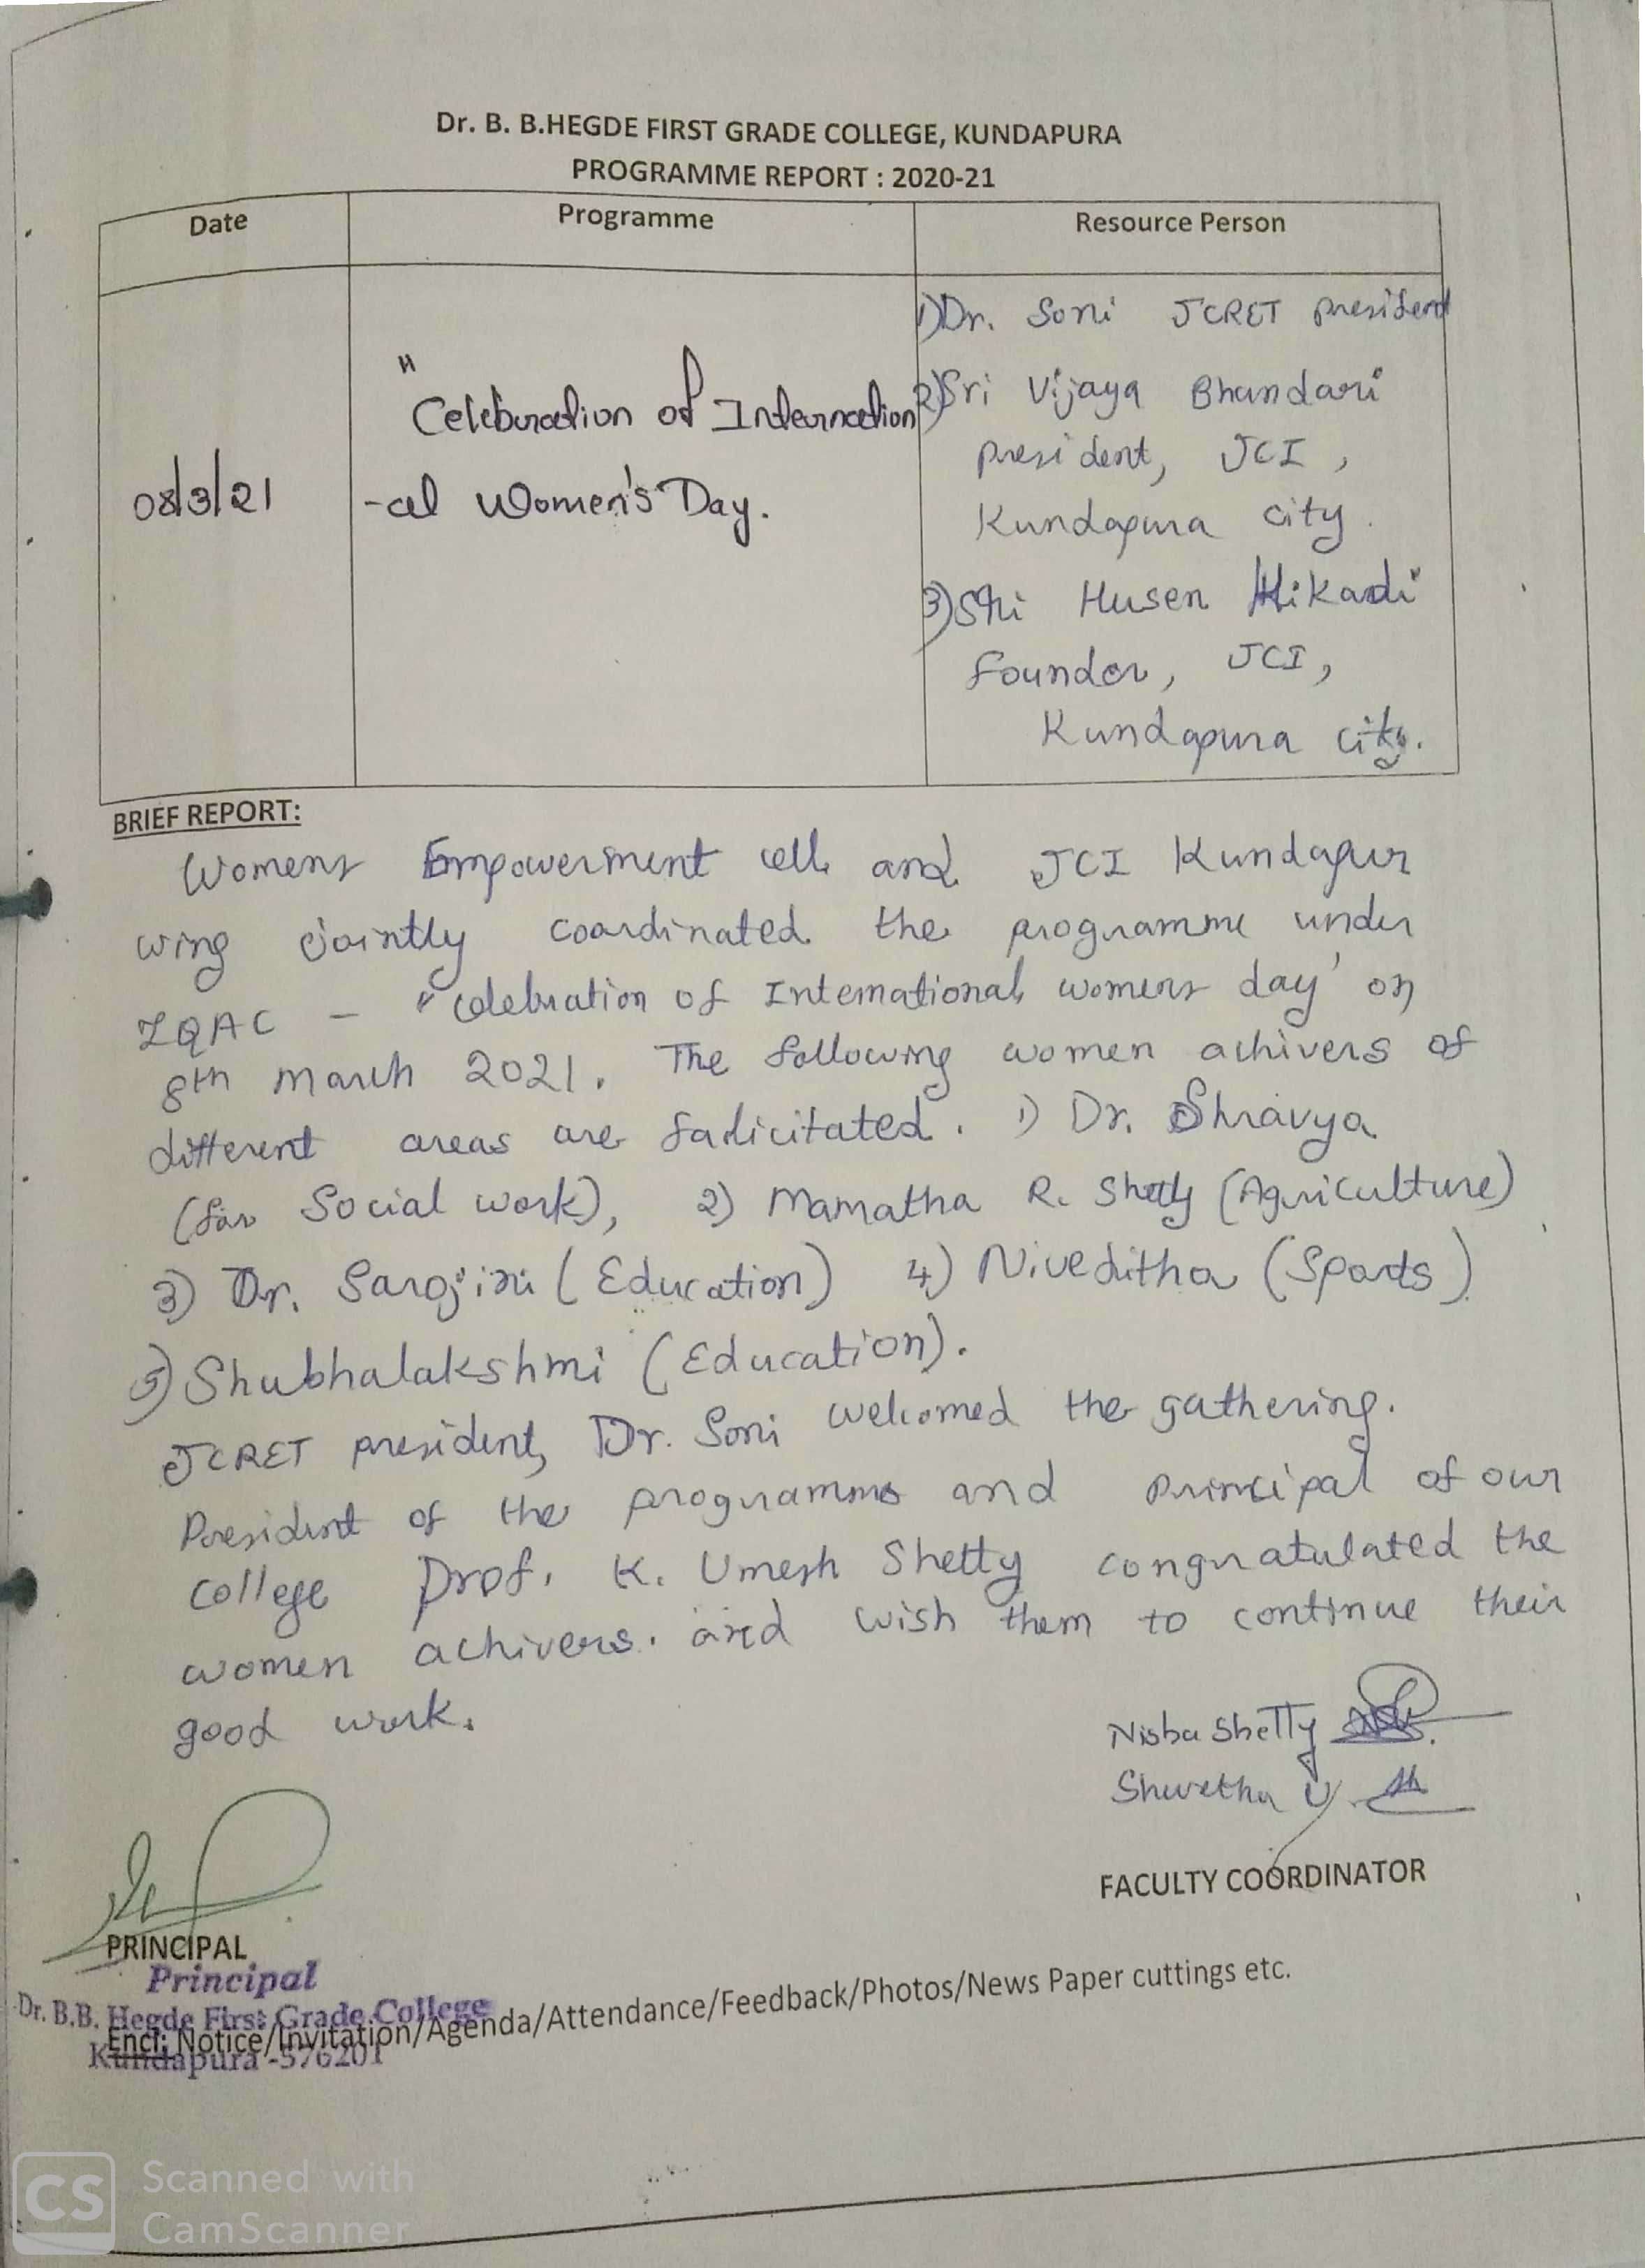 Dr. B. B.HEGDE FIRST GRADE COLLEGE, KUNDAPURA
PROGRAMME REPORT : 2020-21
Date Programme Resource Person
08/3/21
"Celebration of Internation
-al Women's Day.
1) Dr. Soni JCRET president
2) Sri Vijaya Bhandari
president, JCI,
Kundapura city.
3) Shi Husen
Founder, JCI,
Kundapura city.
BRIEF REPORT:
Womens Empowerment cell and JCI Kundapur
wing jointly coordinated the programme under
IQAC - "celebration of International womens day' on
8th march 2021. The following women achivers of
different areas are falicitated. 1) Dr. Shravya
(for Social work), 2) Mamatha R. Shetty (Agriculture)
3) Dr. Sarojini (Education) 4) Niveditha (Sports)
5) Shubhalakshmi (Education).
JCRET president, Dr. Soni welcomed the gathering.
President of the programme and principal of our
college Prof. K. Umesh Shetty congratulated the
women achivers. and wish them to continue their
good work.
Nisba Shetty
Shwetha
FACULTY COORDINATOR
PRINCIPAL
Principal
Dr. B.B. Hegde First Grade College
Kundapura -576201
Encl: Notice/Invitation/Agenda/Attendance/Feedback/Photos/News Paper cuttings etc.
CS Scanned with
CamScanner